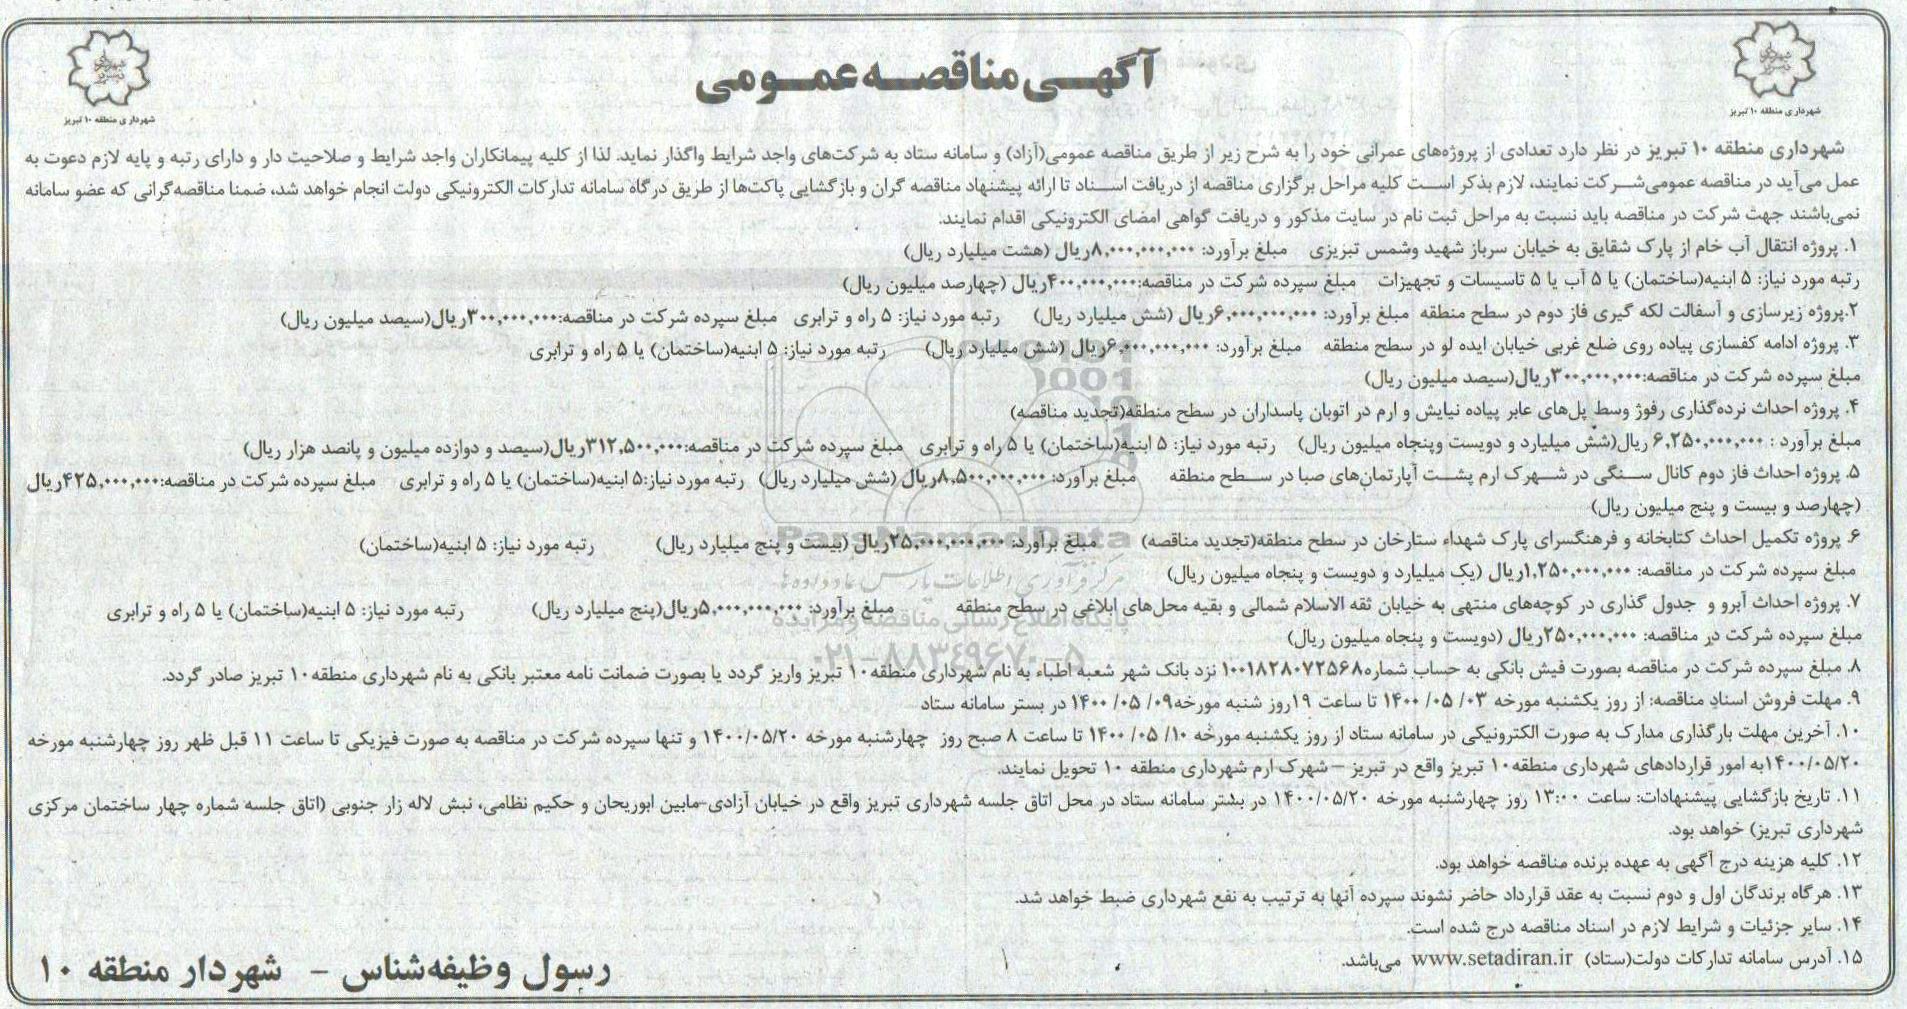 آگهـی مناقصـه عمـومی
شهرداری منطقه ۱۰ تبریز
شهرداری منطقه ۱۰ تبریز
شهرداری منطقه ۱۰ تبریز در نظر دارد تعدادی از پروژه‌های عمرانی خود را به شرح زیر از طریق مناقصه عمومی(آزاد) و سامانه ستاد به شرکت‌های واجد شرایط واگذار نماید. لذا از کلیه پیمانکاران واجد شرایط و صلاحیت دار و دارای رتبه و پایه لازم دعوت به
عمل می‌آید در مناقصه عمومی شـرکت نمایند، لازم بذکر اسـت کلیه مراحل برگزاری مناقصه از دریافت اسـناد تا ارائه پیشنهاد مناقصه گران و بازگشایی پاکت‌ها از طریق درگاه سامانه تدارکات الکترونیکی دولت انجام خواهد شد، ضمنا مناقصه‌گرانی که عضو سامانه
نمی‌باشند جهت شرکت در مناقصه باید نسبت به مراحل ثبت نام در سایت مذکور و دریافت گواهی امضای الکترونیکی اقدام نمایند.
۱. پروژه انتقال آب خام از پارک شقایق به خیابان سرباز شهید وشمس تبریزی مبلغ برآورد: ۸,۰۰۰,۰۰۰,۰۰۰ریال (هشت میلیارد ریال)
رتبه مورد نیاز: ۵ ابنیه(ساختمان) یا ۵ آب یا ۵ تاسیسات و تجهیزات مبلغ سپرده شرکت در مناقصه:۴۰۰,۰۰۰,۰۰۰ریال (چهارصد میلیون ریال)
۲.پروژه زیرسازی و آسفالت لکه گیری فاز دوم در سطح منطقه مبلغ برآورد: ۶,۰۰۰,۰۰۰,۰۰۰ریال (شش میلیارد ریال) رتبه مورد نیاز: ۵ راه و ترابری مبلغ سپرده شرکت در مناقصه:۳۰۰,۰۰۰,۰۰۰ریال(سیصد میلیون ریال)
۳. پروژه ادامه کفسازی پیاده روی ضلع غربی خیابان ایده لو در سطح منطقه مبلغ برآورد: ۶,۰۰۰,۰۰۰,۰۰۰ریال (شش میلیارد ریال) رتبه مورد نیاز: ۵ ابنیه(ساختمان) یا ۵ راه و ترابری
مبلغ سپرده شرکت در مناقصه:۳۰۰,۰۰۰,۰۰۰ریال(سیصد میلیون ریال)
۴. پروژه احداث نرده‌گذاری رفوژ وسط پل‌های عابر پیاده نیایش و ارم در اتوبان پاسداران در سطح منطقه(تجدید مناقصه)
مبلغ برآورد : ۶,۲۵۰,۰۰۰,۰۰۰ ریال(شش میلیارد و دویست وپنجاه میلیون ریال) رتبه مورد نیاز: ۵ ابنیه(ساختمان) یا ۵ راه و ترابری مبلغ سپرده شرکت در مناقصه:۳۱۲,۵۰۰,۰۰۰ریال(سیصد و دوازده میلیون و پانصد هزار ریال)
۵. پروژه احداث فاز دوم کانال سـنگی در شـهرک ارم پشـت آپارتمان‌های صبا در سـطح منطقه مبلغ برآورد: ۸,۵۰۰,۰۰۰,۰۰۰ریال (شش میلیارد ریال) رتبه مورد نیاز:۵ ابنیه(ساختمان) یا ۵ راه و ترابری مبلغ سپرده شرکت در مناقصه:۴۲۵,۰۰۰,۰۰۰ریال
(چهارصد و بیست و پنج میلیون ریال)
۶. پروژه تکمیل احداث کتابخانه و فرهنگسرای پارک شهداء ستارخان در سطح منطقه(تجدید مناقصه) مبلغ برآورد: ۲۵,۰۰۰,۰۰۰,۰۰۰ریال (بیست و پنج میلیارد ریال) رتبه مورد نیاز: ۵ ابنیه(ساختمان)
مبلغ سپرده شرکت در مناقصه: ۱,۲۵۰,۰۰۰,۰۰۰ریال (یک میلیارد و دویست و پنجاه میلیون ریال)
۷. پروژه احداث آبرو و جدول گذاری در کوچه‌های منتهی به خیابان ثقه الاسلام شمالی و بقیه محل‌های ابلاغی در سطح منطقه مبلغ برآورد: ۵,۰۰۰,۰۰۰,۰۰۰ریال(پنج میلیارد ریال) رتبه مورد نیاز: ۵ ابنیه(ساختمان) یا ۵ راه و ترابری
مبلغ سپرده شرکت در مناقصه: ۲۵۰,۰۰۰,۰۰۰ریال (دویست و پنجاه میلیون ریال)
۸. مبلغ سپرده شرکت در مناقصه بصورت فیش بانکی به حساب شماره۱۰۰۱۸۲۸۰۷۲۵۶۸ نزد بانک شهر شعبه اطباء به نام شهرداری منطقه۱۰ تبریز واریز گردد یا بصورت ضمانت نامه معتبر بانکی به نام شهرداری منطقه۱۰ تبریز صادر گردد.
۹. مهلت فروش اسناد مناقصه: از روز یکشنبه مورخه ۰۳/ ۰۵/ ۱۴۰۰ تا ساعت ۱۹روز شنبه مورخه۰۹/ ۰۵/ ۱۴۰۰ در بستر سامانه ستاد
۱۰. آخرین مهلت بارگذاری مدارک به صورت الکترونیکی در سامانه ستاد از روز یکشنبه مورخه ۱۰/ ۰۵/ ۱۴۰۰ تا ساعت ۸ صبح روز چهارشنبه مورخه ۱۴۰۰/۰۵/۲۰ و تنها سپرده شرکت در مناقصه به صورت فیزیکی تا ساعت ۱۱ قبل ظهر روز چهارشنبه مورخه
۱۴۰۰/۰۵/۲۰به امور قراردادهای شهرداری منطقه۱۰ تبریز واقع در تبریز –شهرک ارم شهرداری منطقه ۱۰ تحویل نمایند.
۱۱. تاریخ بازگشایی پیشنهادات: ساعت ۱۳:۰۰ روز چهارشنبه مورخه ۱۴۰۰/۰۵/۲۰ در بستر سامانه ستاد در محل اتاق جلسه شهرداری تبریز واقع در خیابان آزادی-مابین ابوریحان و حکیم نظامی، نبش لاله زار جنوبی (اتاق جلسه شماره چهار ساختمان مرکزی
شهرداری تبریز) خواهد بود.
۱۲. کلیه هزینه درج آگهی به عهده برنده مناقصه خواهد بود.
۱۳. هرگاه برندگان اول و دوم نسبت به عقد قرارداد حاضر نشوند سپرده آنها به ترتیب به نفع شهرداری ضبط خواهد شد.
۱۴. سایر جزئیات و شرایط لازم در اسناد مناقصه درج شده است.
۱۵. آدرس سامانه تدارکات دولت(ستاد) www.setadiran.ir می‌باشد.
رسول وظیفه‌شناس – شهردار منطقه ۱۰
ParsNamadData
مرکز فرآوری اطلاعات پارس نماد داده‌ها
پایگاه اطلاع رسانی مناقصه و مزایده
۰۲۱-۸۸۳۴۹۶۷۰-۵